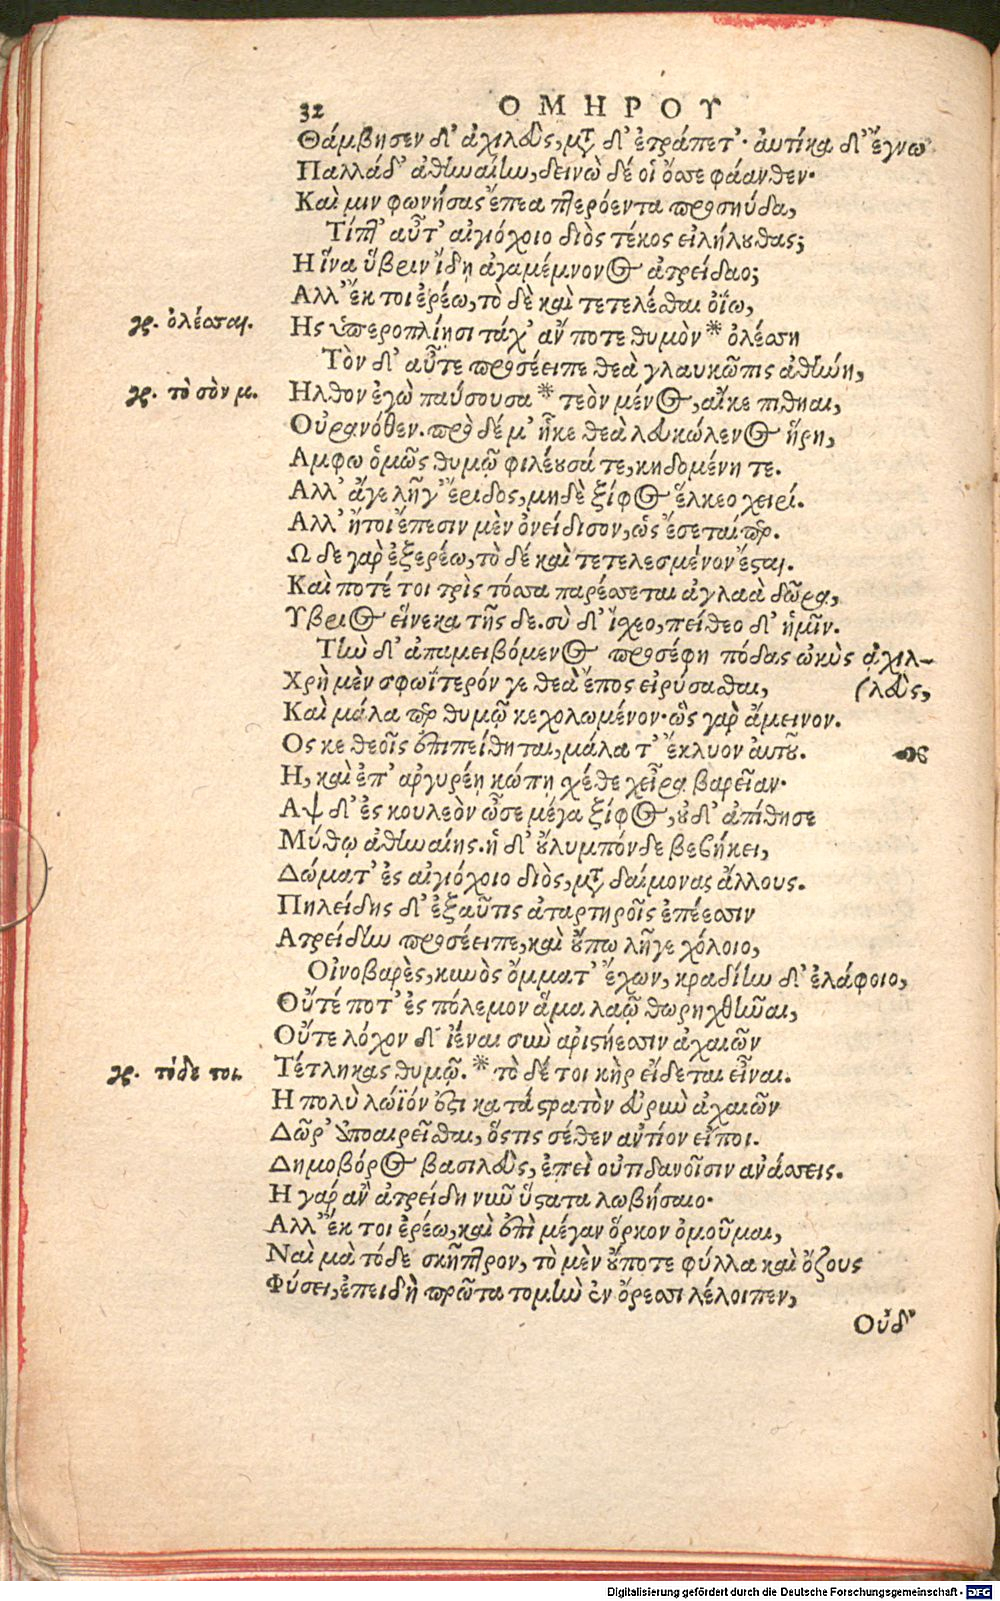 32 ΟΜΗΡΟΥ
Θάμβησεν δ' ἀχιλεὺς, μετ δ' ἐτράπετ'· αὐτίκα δ' ἔγνω
Παλλάδ' ἀθηναίην, δεινὼ δέ οἱ ὄσσε φάανθεν·
Καὶ μιν φωνήσας ἔπεα πτερόεντα προσηύδα,
Τίπτ' αὖτ' αἰγιόχοιο διὸς τέκος εἰλήλουθας;
Η ἵνα ὕβριν ἴδῃ ἀγαμέμνονος ἀτρείδαο;
Αλλ' ἔκ τοι ἐρέω, τὸ δὲ καὶ τετελέσθαι ὀΐω,
γρ. ὀλέσσαι. Ης ὑπεροπλίῃσι τάχ' ἄν ποτε θυμὸν * ὀλέσσῃ
Τὸν δ' αὖτε προσέειπε θεὰ γλαυκῶπις ἀθήνη,
γρ. τὸ σὸν μ. Ηλθον ἐγὼ παύσουσα * τεὸν μένος, αἴκε πίθηαι,
Οὐρανόθεν. πρὸ δέ μ' ἧκε θεὰ λευκώλενος ἥρη,
Αμφω ὁμῶς θυμῷ φιλέουσά τε, κηδομένη τε.
Αλλ' ἄγε λῆγ' ἔριδος, μηδὲ ξίφος ἕλκεο χειρί.
Αλλ' ἤτοι ἔπεσιν μὲν ὀνείδισον, ὡς ἔσεταί περ.
Ω δε γὰρ ἐξερέω, τὸ δέ καὶ τετελεσμένον ἔσται.
Καὶ ποτέ τοι τρὶς τόσσα παρέσσεται ἀγλαὰ δῶρα,
Υβριος εἵνεκα τῆς δε. σὺ δ' ἴσχεο, πείθεο δ' ἡμῖν.
Τὴν δ' ἀπαμειβόμενος προσέφη πόδας ὠκὺς ἀχιλ-
Χρὴ μὲν σφωΐτερόν γε θεὰ ἔπος εἰρύσασθαι, (λεὺς,
Καὶ μάλα περ θυμῷ κεχολωμένον· ὣς γὰρ ἄμεινον.
Ος κε θεοῖς ἐπιπείθηται, μάλα τ' ἔκλυον αὐτοῦ.
Η, καὶ ἐπ' ἀργυρέῃ κώπῃ σχέθε χεῖρα βαρεῖαν·
Αψ δ' ἐς κουλεὸν ὦσε μέγα ξίφος, οὐδ' ἀπίθησε
Μύθῳ ἀθηναίης. ἡ δ' οὔλυμπόνδε βεβήκει,
Δώματ' ἐς αἰγιόχοιο διὸς, μετ δαίμονας ἄλλους.
Πηλείδης δ' ἐξαῦτις ἀταρτηροῖς ἐπέεσσιν
Ατρείδην προσέειπε, καὶ οὔπω λῆγε χόλοιο,
Οἰνοβαρὲς, κυνὸς ὄμματ' ἔχων, κραδίην δ' ἐλάφοιο,
Οὔτέ ποτ' ἐς πόλεμον ἅμα λαῷ θωρηχθῆναι,
Οὔτε λόχον δ' ἰέναι σὺν ἀριστήεσσιν ἀχαιῶν
γρ. τόδε τοι. Τέτληκας θυμῷ. * τὸ δέ τοι κὴρ εἴδεται εἶναι.
Η πολὺ λώϊόν ἐστι κατά στρατὸν εὐρὺν ἀχαιῶν
Δῶρ' ὑποαιρεῖσθαι, ὅστις σέθεν ἀντίον εἴποι.
Δημοβόρος βασιλεὺς, ἐπεὶ οὐτιδανοῖσιν ἀνάσσεις.
Η γάρ ἂν ἀτρείδη νῦν ὕστατα λωβήσαιο·
Αλλ' ἔκ τοι ἐρέω, καὶ ἐπὶ μέγαν ὅρκον ὀμοῦμαι,
Ναὶ μὰ τόδε σκῆπτρον, τὸ μὲν οὔποτε φύλλα καὶ ὄζους
Φύσει, ἐπειδὴ πρῶτα τομὴν ἐν ὄρεσσι λέλοιπεν,
Οὐδ'
Digitalisierung gefördert durch die Deutsche Forschungsgemeinschaft - DFG